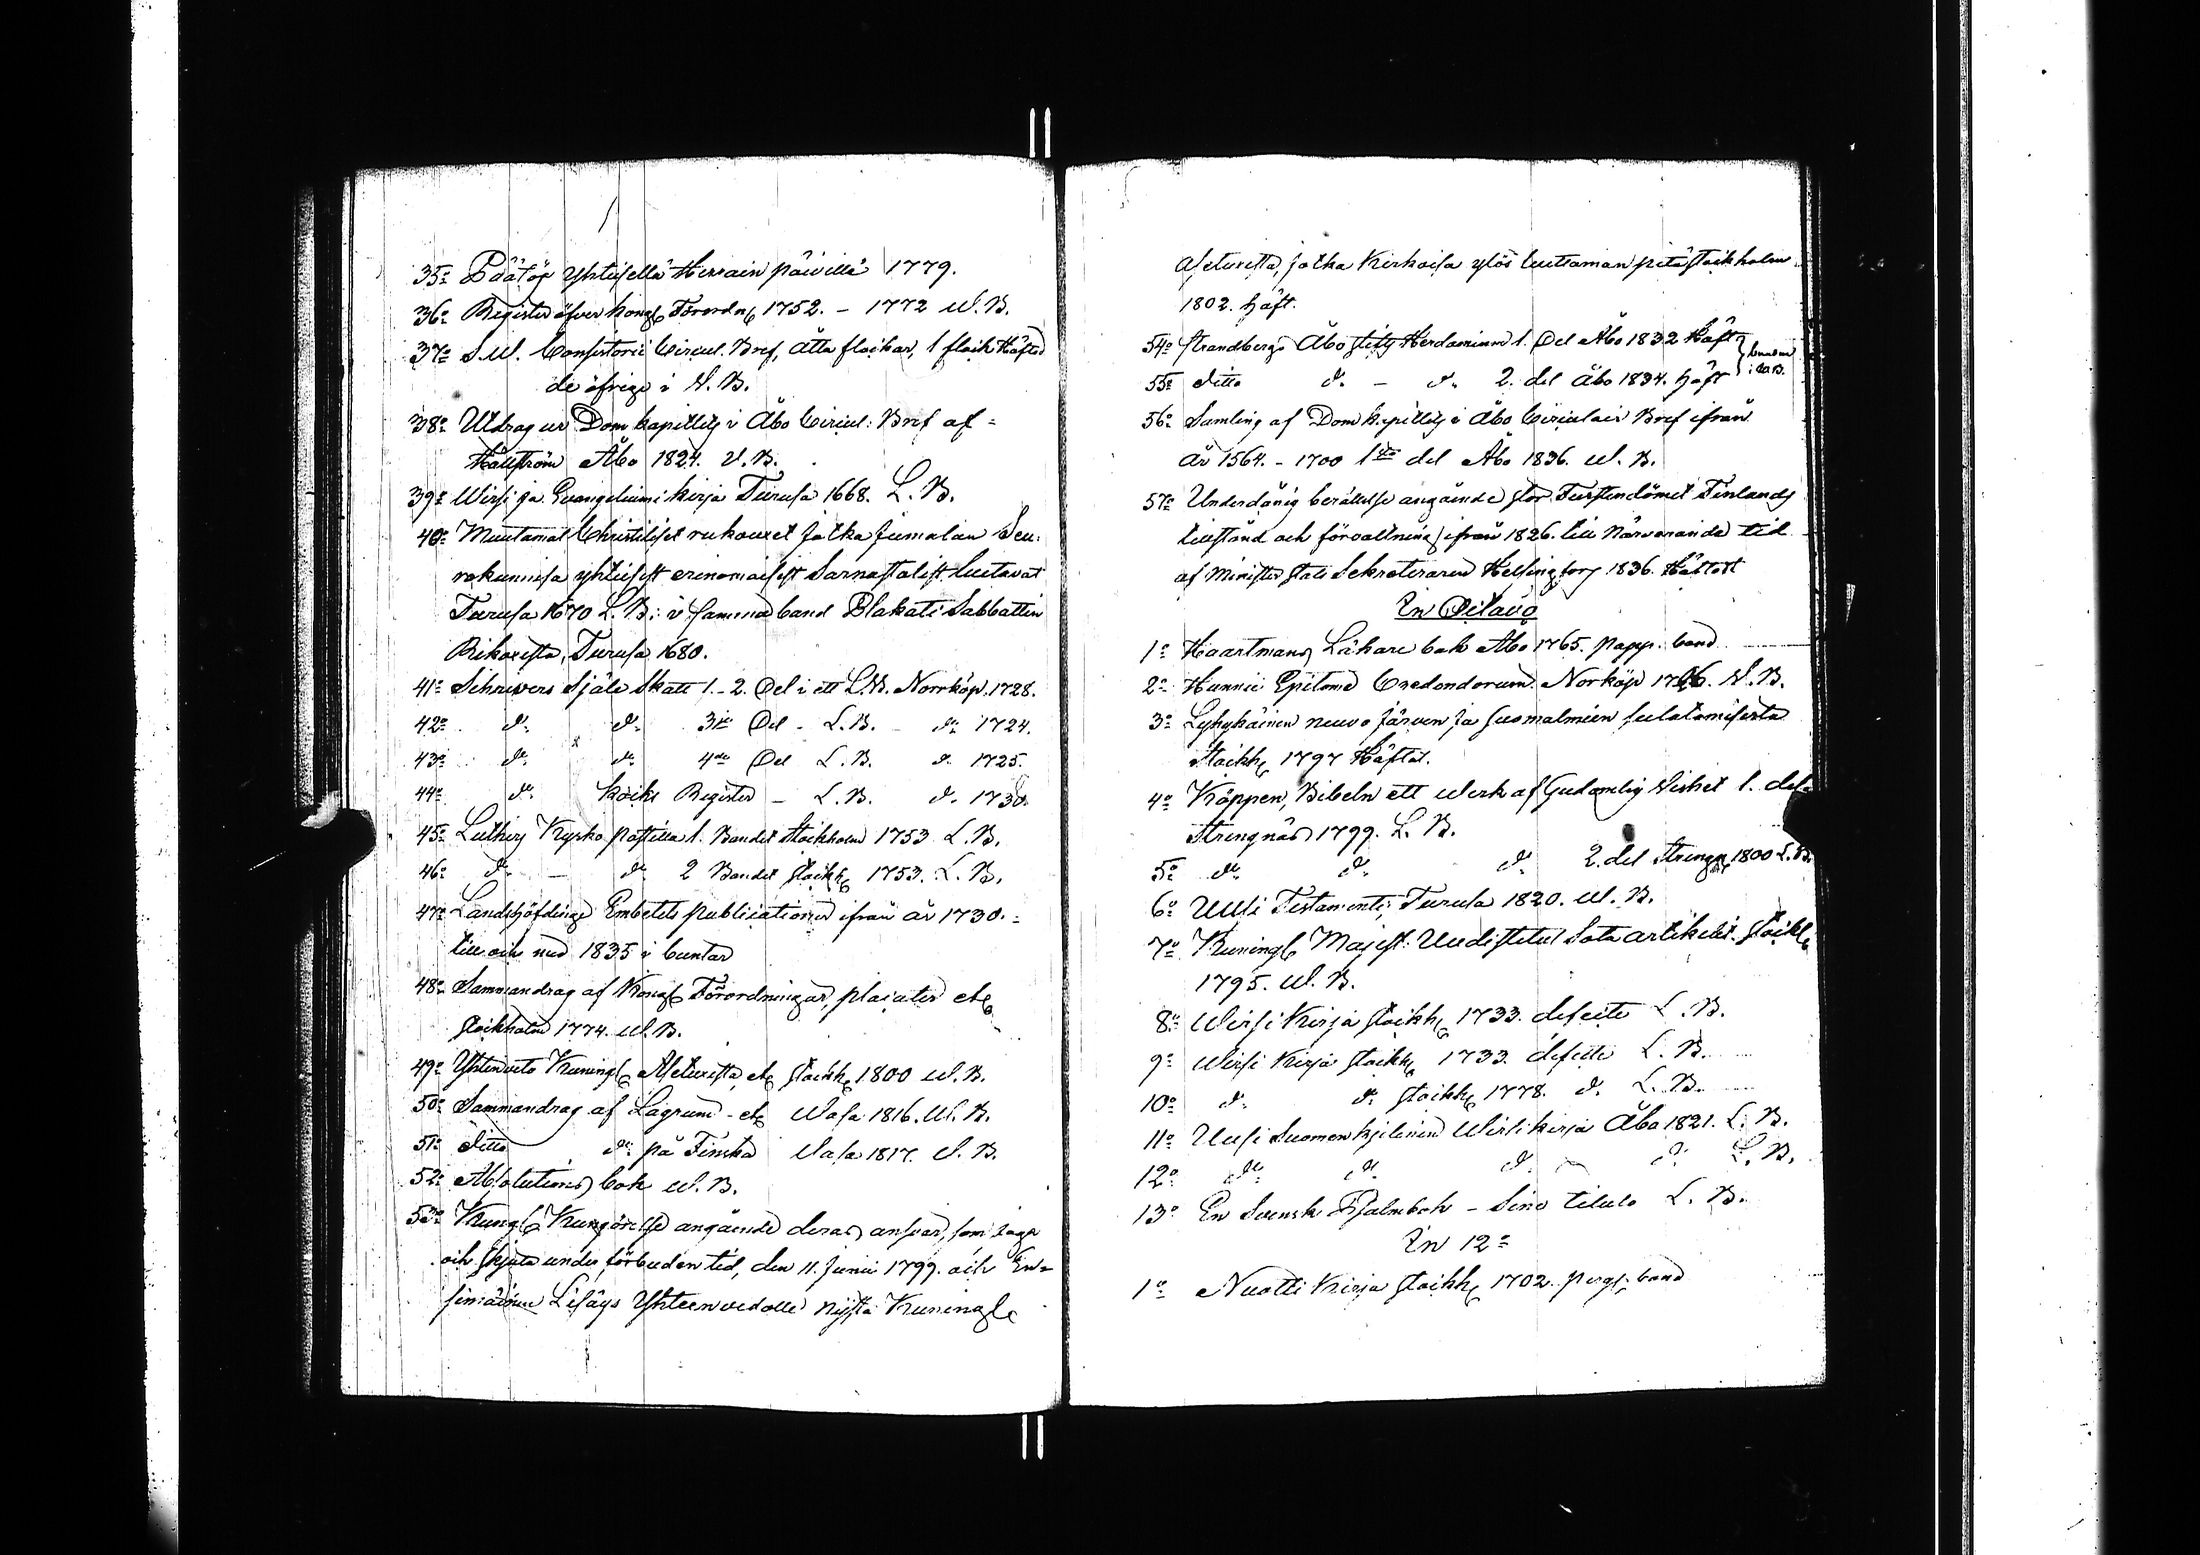 35º Päätös yhteisellä Herrain päivillä 1779.
36º Register öfver kongl. Förordn. 1752. – 1772 W. B.
37º S. W. Consistorii Circul. Bref, åtta flockar, 1 flock Häftad
de öfriga i W. B.
38º Utdrag ur Dom kapitlets i Åbo Circul: Bref af =
Hällström Åbo 1824. W. B.
39º Wirsi ja Evangeliumi kirja Turusa 1668. L. B.
40º Muutamat Christiliset rukouxet jotka Jumalan Seu:
rakunnisa yhteisest erinomaisest Sarnastolist luetavat
Turusa 1670 L. B: i samma band Plakati Sabbattin
Rikoxista, Turusa 1680.
41º Schrivers Själe Skatt 1.–2. Del i ett L. B. Norrköp. 1728.
42º dº dº 3je Del – L. B. – dº 1724.
43º dº dº 4de Del L. B. dº 1725.
44º dº Register – L. B. dº 1730.
45º Lutheri Kyrko postilla 1. Bandet Stockholm 1753 L. B.
46º dº – dº 2 Bandet Stockh. 1753. L. B.
47º Landshöfdinge Embetets publicationer ifrån år 1730. =
till och med 1835 i buntar
48º Sammandrag af Kongl. Förordningar, placater etc.
Stockholm 1774. W. B.
49º Yhtenveto Kuningl. Asetuxista etc. Stockh. 1800 W. B.
50º Sammandrag af Lagrum – etc. Wasa 1816. W. B.
51º Ditto dº på Finska Wasa 1817. W. B.
52º Absolutions bok W. B.
53º Kungl. Kungörelse angående deras ansvar, som jaga
och skjuta under förbuden tid, den 11. Junii 1799. och En=
simäinen Lisäys Yhteenvedolle nijsta Kuningle
Asetuxista, jotka Kirkoisa ylös luettaman pitä Stockholm.
1802. häft.
54º Strandbergs Åbo stifts Herdaminne 1. Del Åbo 1832 Häft
55º Ditto dº – dº 2. del Åbo 1834. häft } bundna
56º Samling af Dom kapitlets i Åbo Circulair Bref ifrån
år 1564. – 1700 1sta del Åbo 1836. W. B.
57º Underdånig berättelse angående stor Furstendömet Finlands
tillstånd och förvaltning ifrån 1826. till närvarande tid
af Minister stats Sekreteraren Helsingfors 1836. Häftad
In Octavo
1º Haartmans Läkare bok Åbo 1765. papp. band
2º Hunnii Epitome Credendorum. Norköp 1746. W. B.
3º Lyhykäinen neuvo Järven ja suomalmien sulatamisesta
Stockh. 1797 Häftat.
4º Köppen, Bibeln ett Werk af Gudomlig Wishet 1. del
Strengnäs 1799. L. B.
5º dº dº dº 2. del Strengn. 1800 L. B.
6º Uusi Testamenti, Turusa 1820. W. B.
7º Kuningl. Majest: Uudistetut Sota artikelit. Stockh.
1795. W. B.
8º Wirsi Kirja Stockh. 1733. defecte L. B.
9º Wirsi Kirja Stockh. 1733. defecte L. B.
10º dº dº Stockh. 1778. dº L. B.
11º Uusi Suomenkjelinen Wirsikirja Åbo 1821. L. B.
12º dº dº dº dº L. B.
13º En Svensk Psalmbok – Sine titulo L. B.
In 12º
1º Nuotti Kirja Stockh. 1702. perg. band